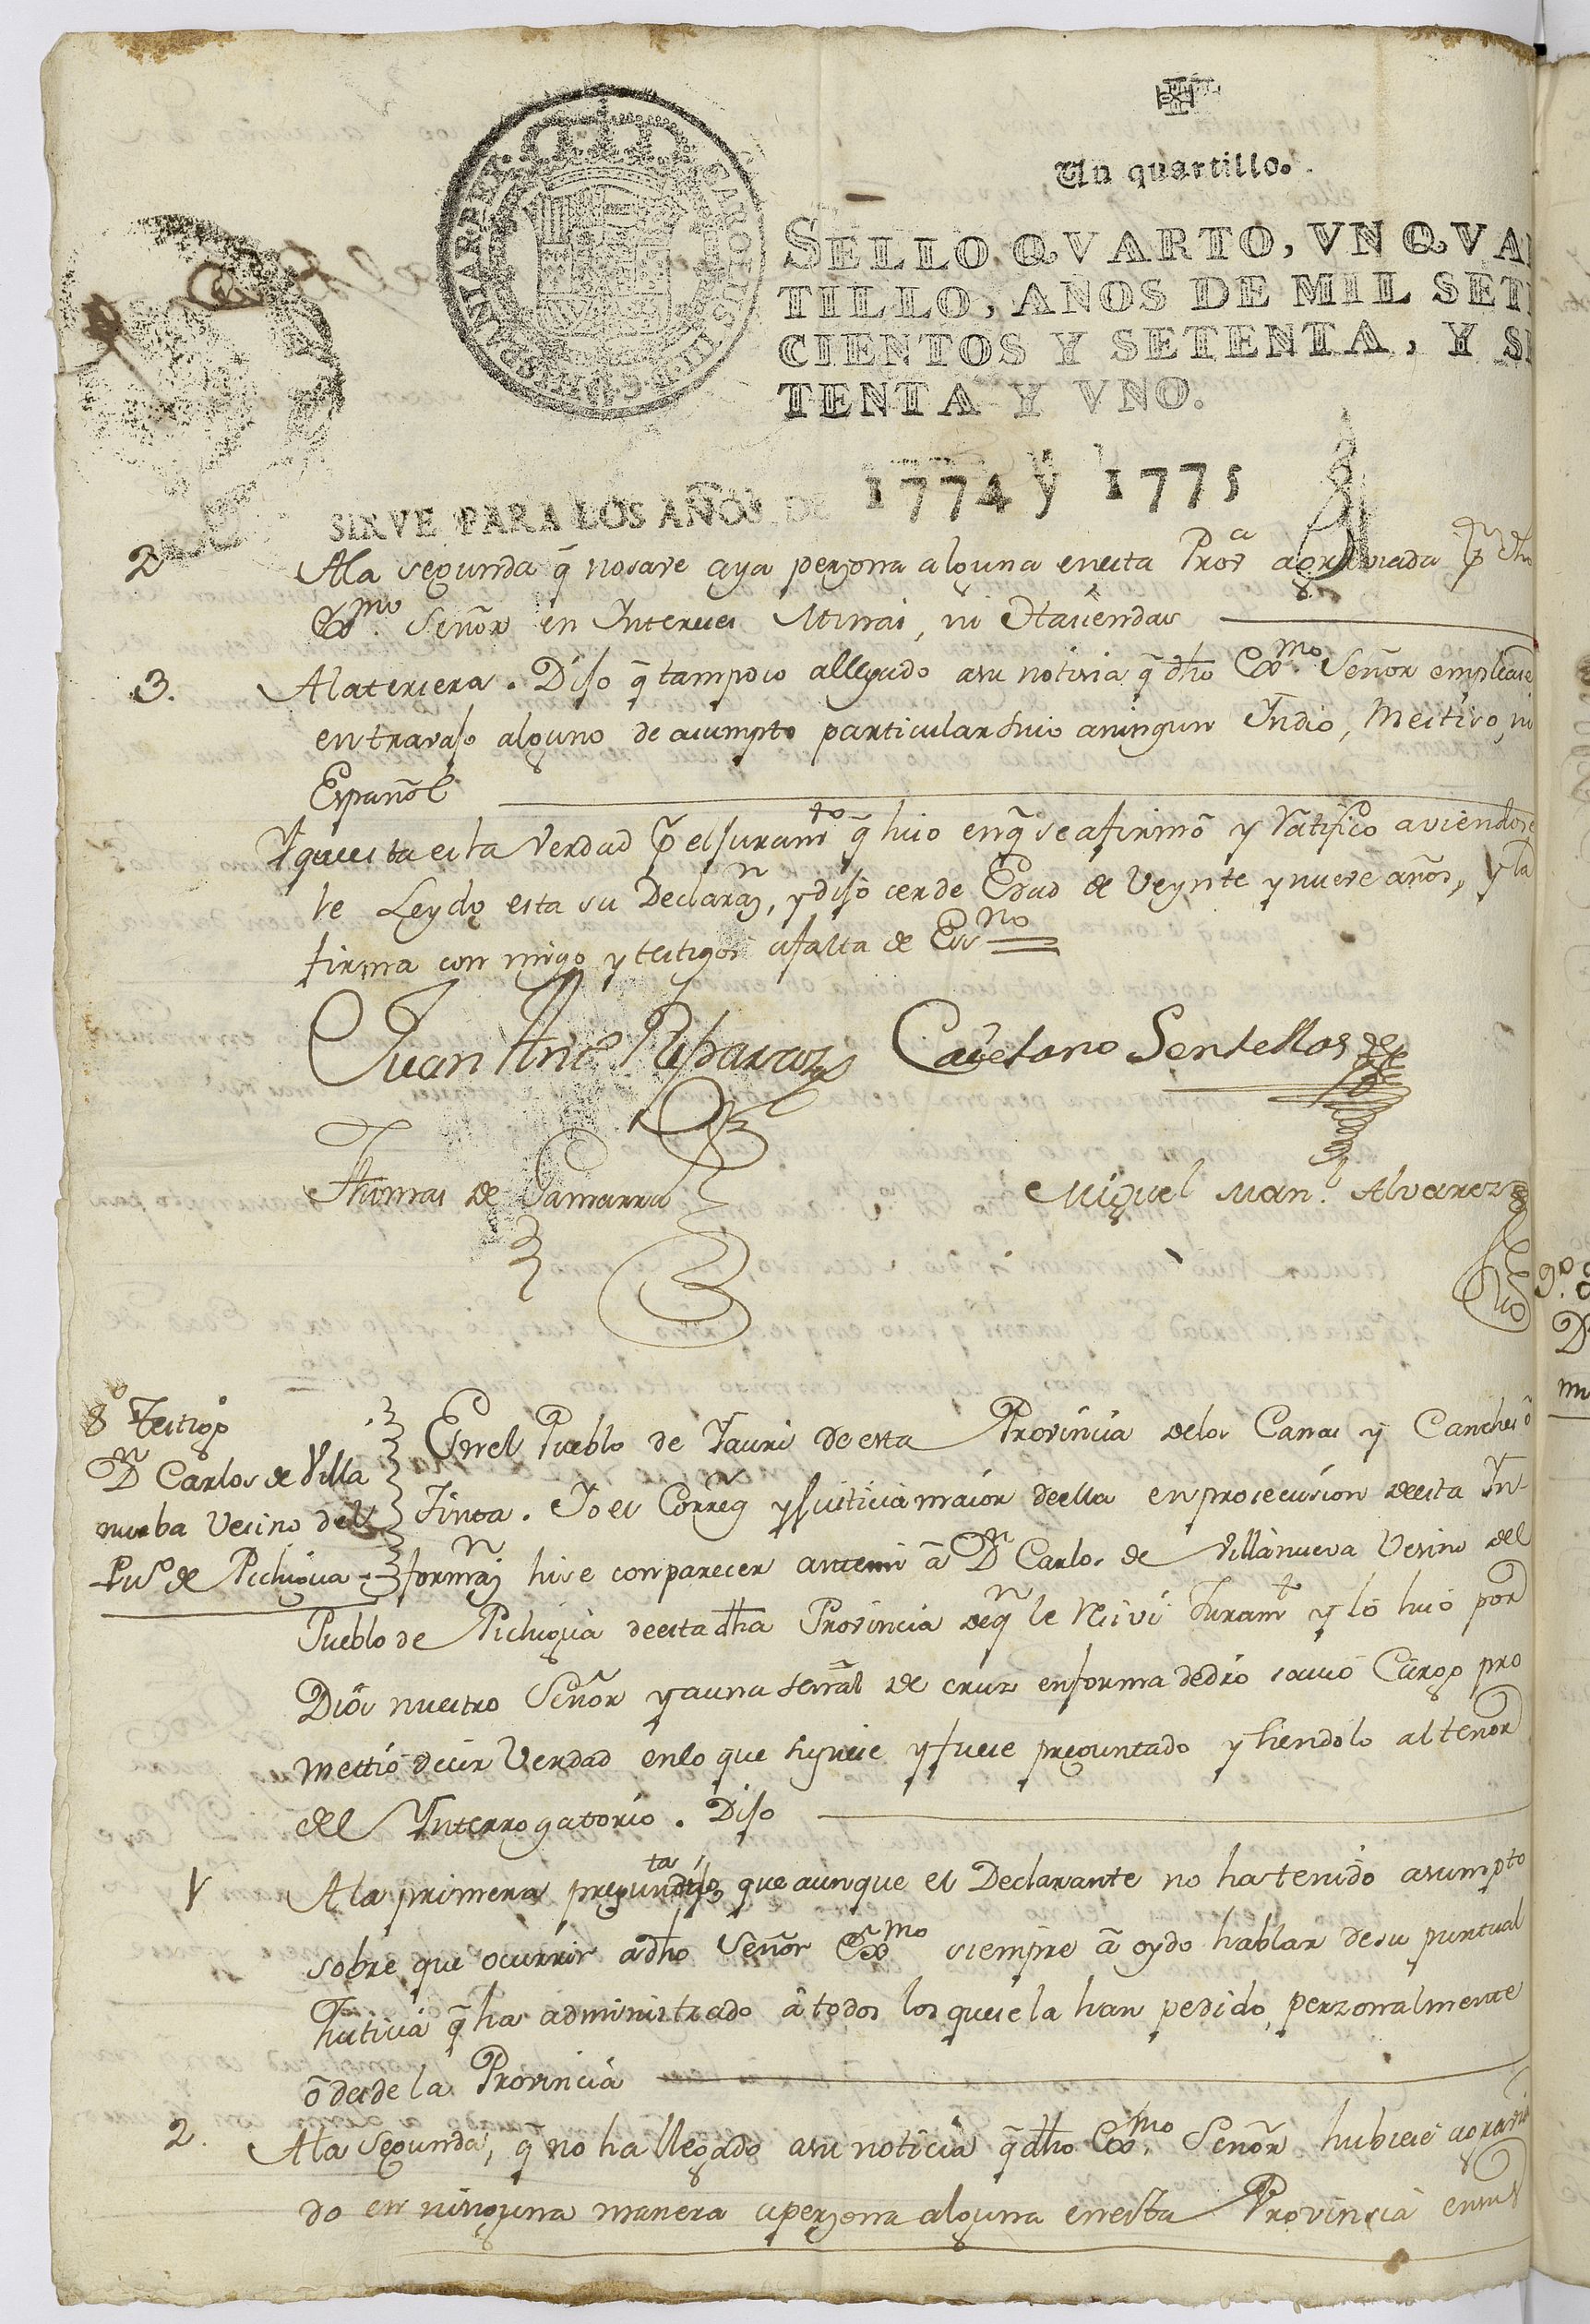 Un quartillo.
SELLO QVARTO, VN QVAR
TILLO, AÑOS DE MIL SETE
CIENTOS Y SETENTA, Y SE
TENTA Y VNO.
SIRVE PARA LOS AÑOS DE 1774 y 1775
2 Ala segunda q̃ nosave aya perzona alguna enesta Prov.ª agraviada p̃ dho
Exmo. Señor en Intereses Minas, ni Haciendas
3. Alatercera. Dijo q̃ tampoco allegado asu noticia q̃ dho Exmo. Señor emplease
entravajo alguno de asumpto particular suio aningun Indio, Mestiso, ni
Español
Y que esta es la Verdad p̃ el Juramto q̃ hiso enq̃ se afirmó y Ratificó aviendose
le Leydo esta su Declaran, y dijo cer de Edad de Veynte y nueve años, y la
firma con migo y testigos afalta de Essno
Juan Anto Cayetano Sentellas
Thomas de Gamarra Miguel Manl. Alvarez
8º Testigo
Dn Carlos de Villa
nueba Vecino del
Puo de Pichigua
Enel Pueblo de Yauri de esta Provincia delos Canas y Canches ô
Tinta. Yo el Correg y Justicia maior deella en prosecusion deesta In-
forman hise conparecer antemi â Dn Carlos de Villanueva Vesino del
Pueblo de Pichigua deesta dha Provincia deqn le Reciví Juramt y lo hiso por
Dios nuestro Señor y auna señal de cruz enforma dedro so cuio Cargo pro
mettió decir Verdad enlo que supiese y fuese preguntado y siendolo al tenor
del Interrogatorio. Dijo
1 Ala primera pregunta dijo que aunque el Declarante no hatenido asumpto
sobre que ocurrir adho Señor Exmo siempre â oydo hablar desu puntual
Justicia q̃ ha administrado â todos los quese la han pedido, perzonalmente
ô desde la Provincia
2. Ala Segunda, q̃ no ha llegado asu noticia q̃ dho Exmo. Señor hubiese agravia
do en ninguna manera aperzona alguna enesta Provincia ensus